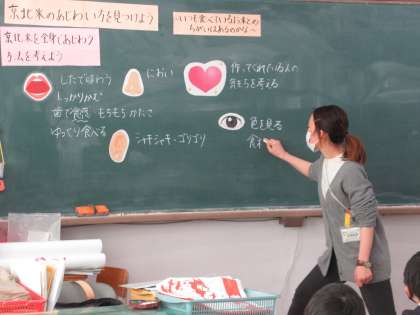 京北米のあじわい方を見つけよう
～いつも食べているお米とのちがいはあるのかな～
京北米を全身であじわう方ほうを考えよう
したで味わう
しっかりかむ
歯で食感 もちもち かたさ
ゆっくり食べる
におい
シャキシャキ・ゴリゴリ
作ってくれている人の
気もちを考える
色を見る
食